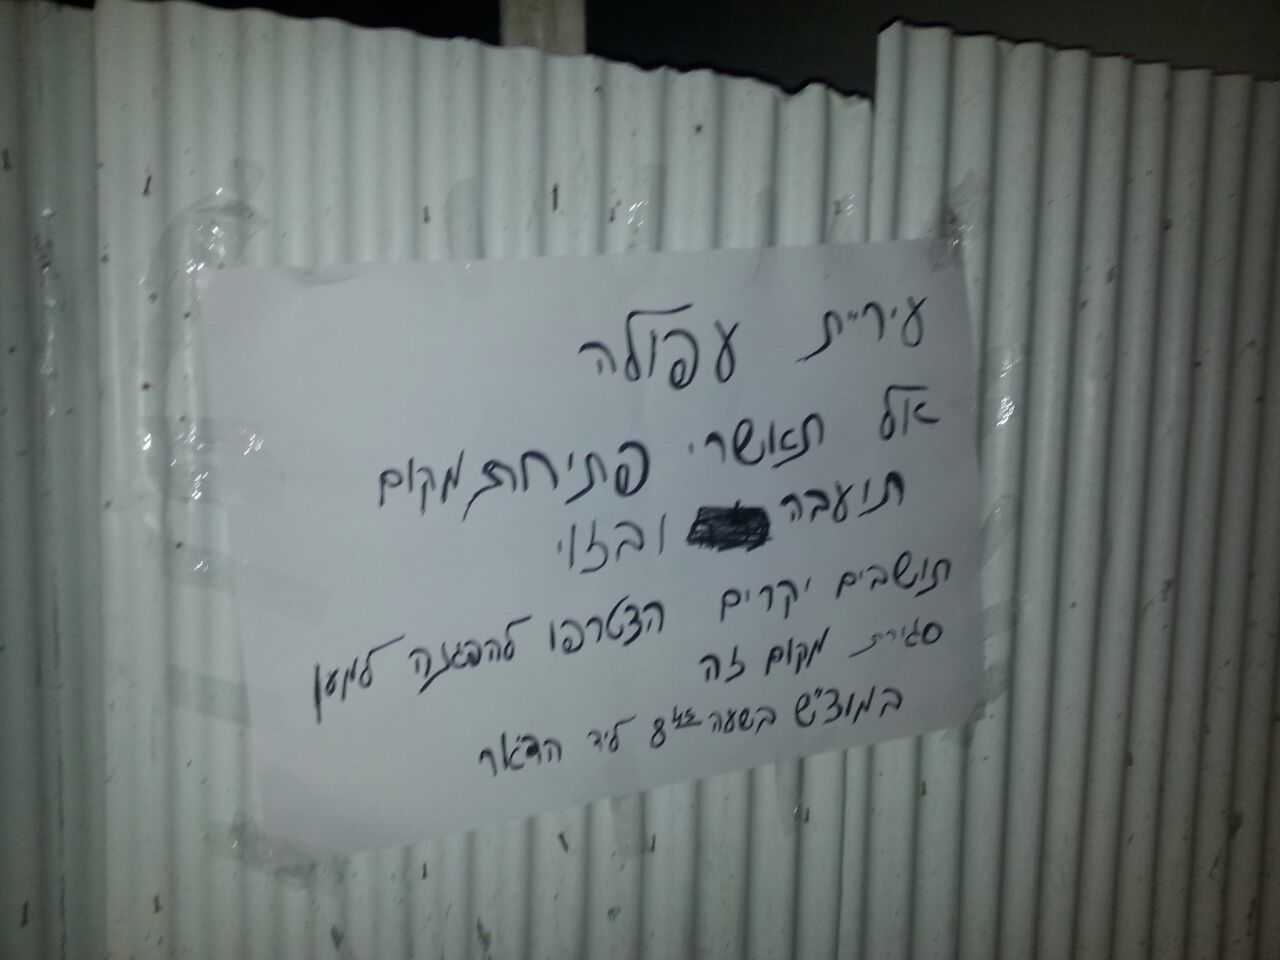 עיריית עפולה
אל תאשרי פתיחת מקום
תועבה ובזוי
תושבים יקרים הצטרפו להפגנה למען
סגירת מקום זה
במוצ"ש בשעה 8:45 ליד הדואר